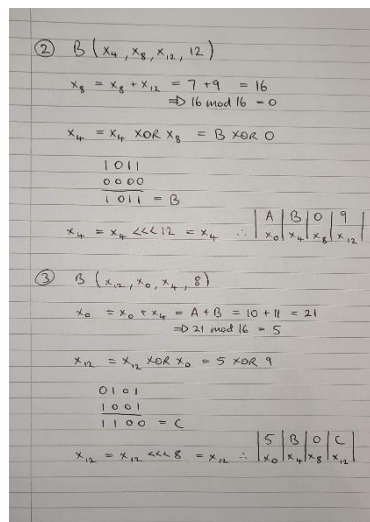 ② B (x₄, x₈, x₁₂, 12)
x₈ = x₈ + x₁₂ = 7 + 9 = 16
⇒ 16 mod 16 = 0
x₄ = x₄ XOR x₈ = B XOR 0
1011
0000
1011 = B
x₄ = x₄ <<< 12 = x₄ ∴ | A | B | 0 | 9 |
x₀ | x₄ | x₈ | x₁₂ |
③ B (x₁₂, x₀, x₄, 8)
x₀ = x₀ + x₄ = A + B = 10 + 11 = 21
⇒ 21 mod 16 = 5
x₁₂ = x₁₂ XOR x₀ = 5 XOR 9
0101
1001
1100 = C
x₁₂ = x₁₂ <<< 8 = x₁₂ ∴ | 5 | B | 0 | C |
x₀ | x₄ | x₈ | x₁₂ |